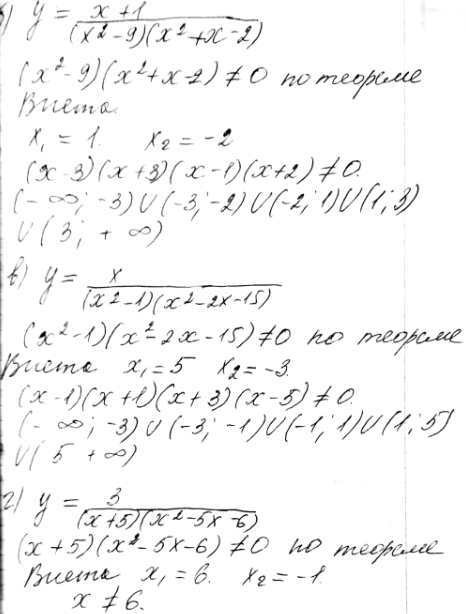 б) y = x+1 / (x²-9)(x²+x-2)
(x²-9)(x²+x-2)≠0 по теореме
Виета.
x₁ = 1. x₂ = -2
(x-3)(x+3)(x-1)(x+2)≠0.
(-∞; -3)U(-3;-2)U(-2;1)U(1;3)
U(3; +∞)
в) y = x / (x²-1)(x²-2x-15)
(x²-1)(x²-2x-15)≠0 по теореме
Виета x₁=5 x₂=-3.
(x-1)(x+1)(x+3)(x-5)≠0.
(-∞; -3)U(-3; -1)U(-1; 1)U(1; 5)
U(5 +∞)
г) y = 3 / (x+5)(x²-5x-6)
(x+5)(x²-5x-6)≠0 по теореме
Виета x₁=6. x₂=-1.
x≠6.